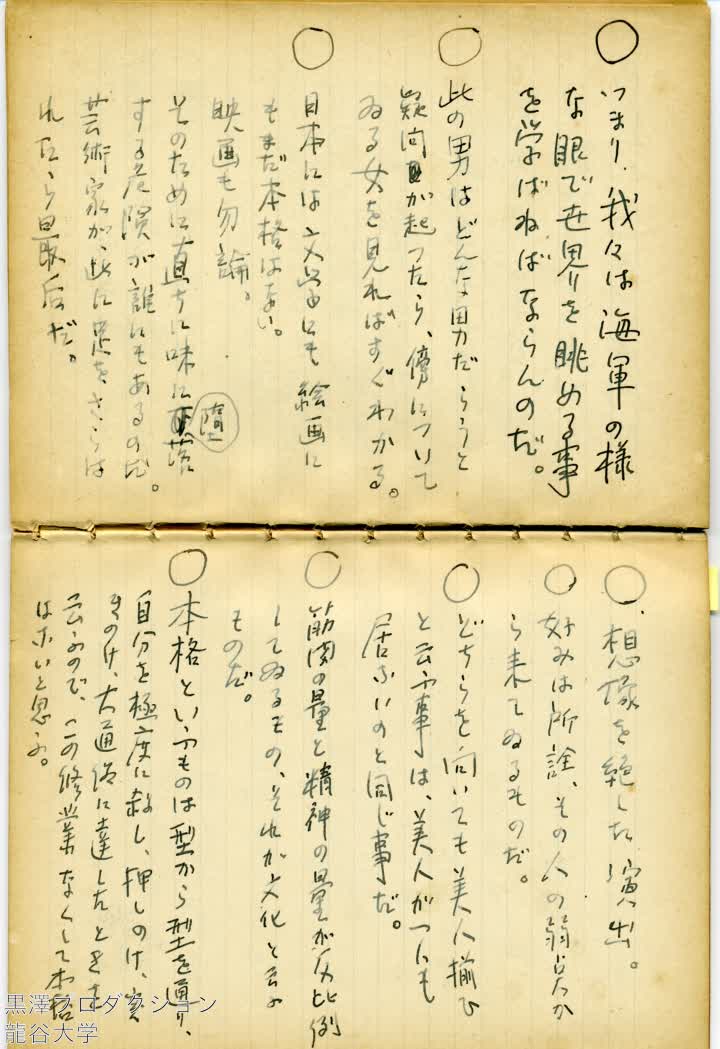 つまり、我々は海軍の様
な眼で世界を眺める事
を学ばねばならんのだ。
此の男はどんな男だらうと
疑問が起つたら、傍について
ゐる女を見ればすぐわかる。
日本には文学にも絵画に
もまだ本格はない。
映画も勿論。
そのために直ちに味に堕落
する危険が誰にもあるのだ。
芸術家が此に足をさらは
れたら最后だ。
想像を絶した演出。
好みは所詮、その人の弱点か
ら来てゐるものだ。
どちらを向いても美人揃ひ
と云ふ事は、美人が一人も
居ないのと同じ事だ。
筋肉の量と精神の量が反比例
してゐるもの、それが文化と云ふ
ものだ。
本格といふものは型から型を通り、
自分を極度に殺し、押しのけ、突
きのけ、大通俗に達したときを
云ふので、この修業なくして本格
はないと思ふ。
黒澤プロダクション
龍谷大学